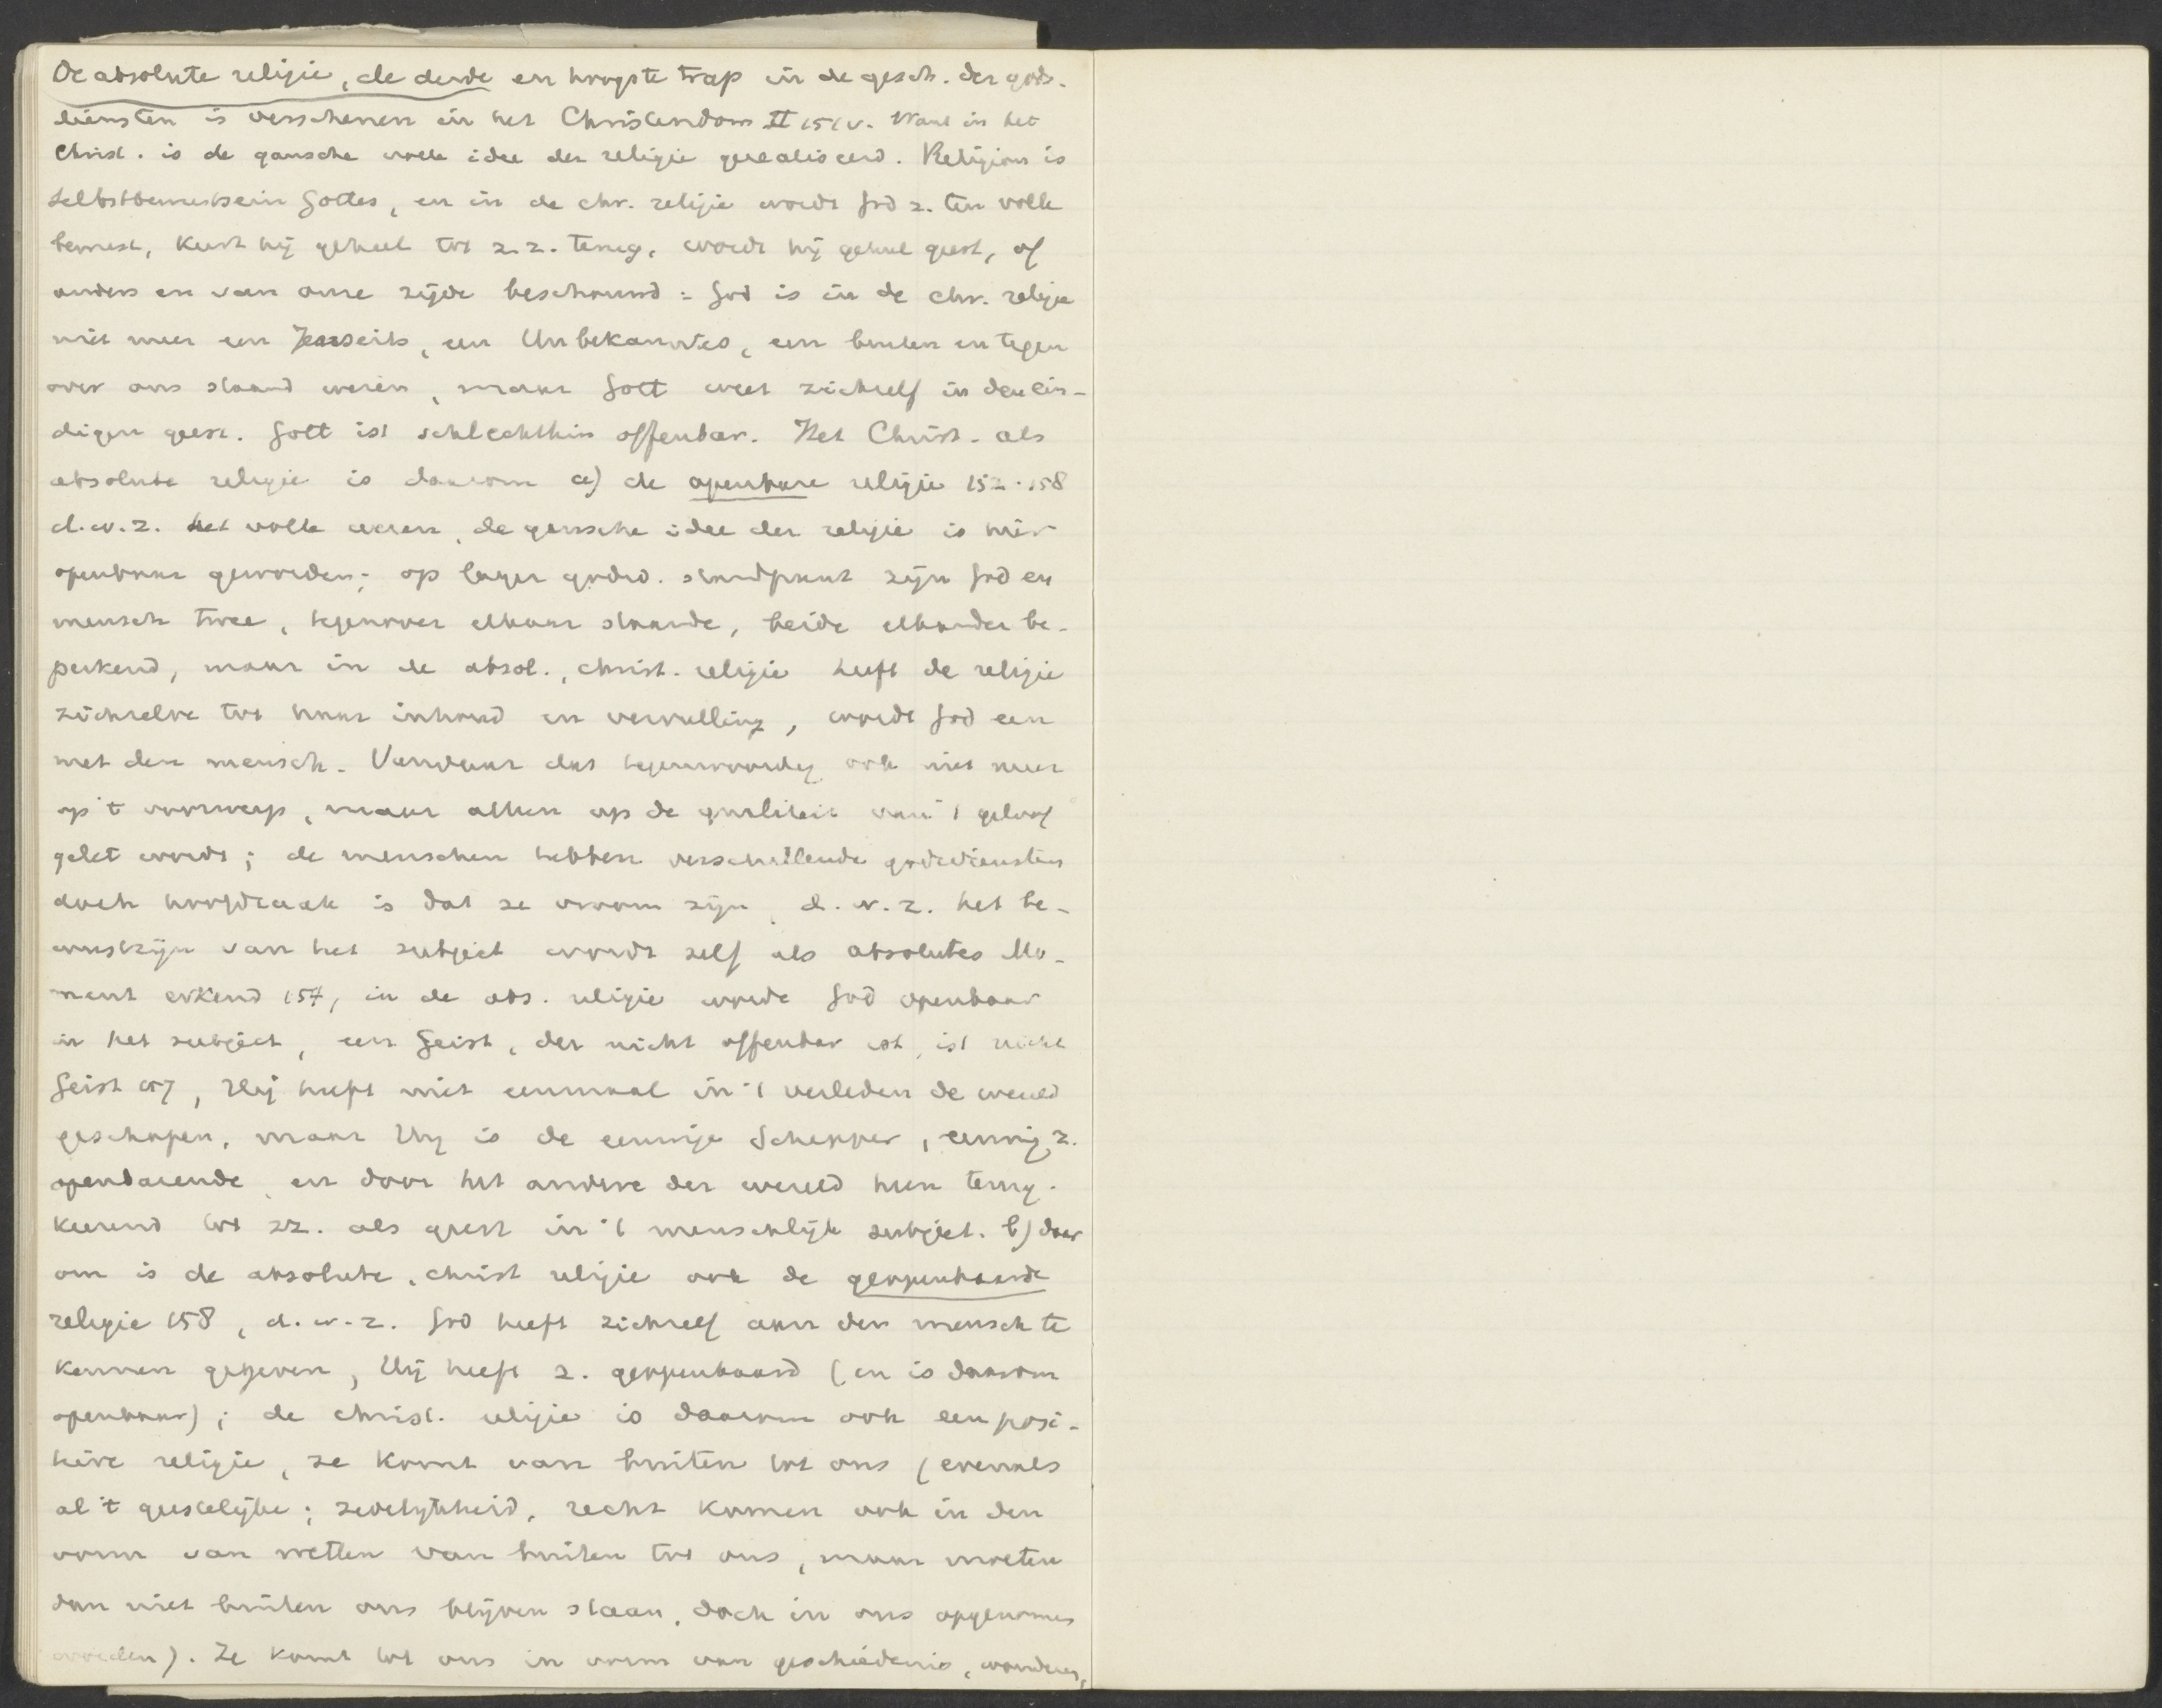 De absolute religie, de derde en hoogste trap in de gesch. der gods-
diensten is verschenen in het Christendom II 151 v. Want in het
Christ. is de gansche volle idee der religie gerealiseerd. Religion is
Selbstbewustsein Gottes, en in de chr. religie wordt God z. ten volle
bewust, keert hij geheel tot z.z. terug, wordt hij geheel geest, of
anders en van onze zijde beschouwd: God is in de chr. religie
niet meer een Jenseits, een Unbekanntes, een buiten en tegen
over ons staand wezen, maar Gott weet zichzelf in den ein-
digen geest. Gott ist schlechthin offenbar. Het Christ. als
absolute religie is daarom a) de openbare religie 152-158
d.w.z. het volle wezen, de gansche idee der religie is hier
openbaar geworden; op lager godsd. standpunt zijn God en
mensch twee, tegenover elkaar staande, beide elkander be-
perkend, maar in de absol., christ. religie heeft de religie
zichzelve tot haar inhoud en vervulling, wordt God een
met den mensch. Vandaar dat tegenwoordig ook niet meer
op 't voorwerp, maar alleen op de qualiteit van 't geloof
gelet wordt; de menschen hebben verschillende godsdiensten
doch hoofdzaak is dat ze vroom zijn, d.w.z. het be-
wustzijn van het subject wordt zelf als absolutes Mo-
ment erkend 157, in de abs. religie wordt God openbaar
in het subject, een Geist, der nicht offenbar ist, ist nicht
Geist 157, Hij heeft niet eenmaal in 't verleden de wereld
geschapen, maar Hij is de eeuwige Schepper, eeuwig z.
openbarende en door het andere der wereld heen terug-
keerend tot zz. als geest in 't menschlijk subject. b) daar
om is de absolute, christ religie ook de geopenbaarde
religie 158, d.w.z. God heeft zichzelf aan den mensch te
kennen gegeven, Hij heeft z. geopenbaard (en is daarom
openbaar); de christ. religie is daarom ook een posi-
tieve religie, ze komt van buiten tot ons (evenals
al 't geestelijke; zedelijkheid, recht komen ook in den
vorm van wetten van buiten tot ons, maar moeten
dan niet buiten ons blijven staan, doch in ons opgenomen
worden). Ze komt tot ons in vorm van geschiedenis, wonderen,